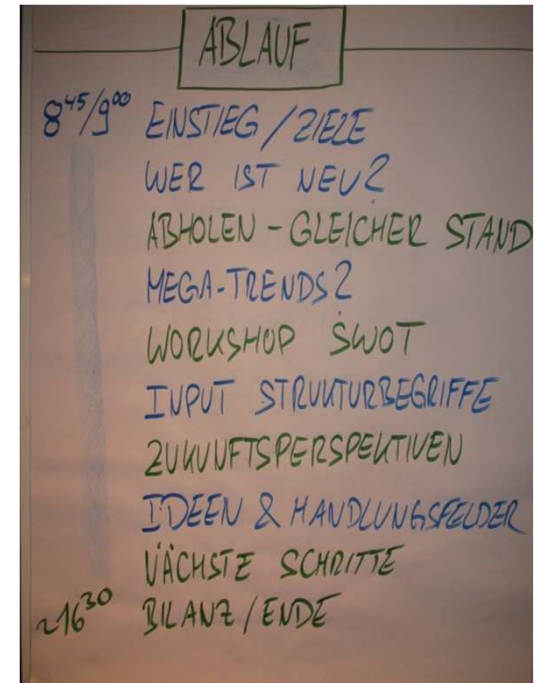 ABLAUF
8⁴⁵/9⁰⁰ EINSTIEG / ZIELE
WER IST NEU?
ABHOLEN - GLEICHER STAND
MEGA-TRENDS?
WORKSHOP SWOT
INPUT STRUKTURBEGRIFFE
ZUKUNFTSPERSPEKTIVEN
IDEEN & HANDLUNGSFELDER
NÄCHSTE SCHRITTE
~16³⁰ BILANZ / ENDE